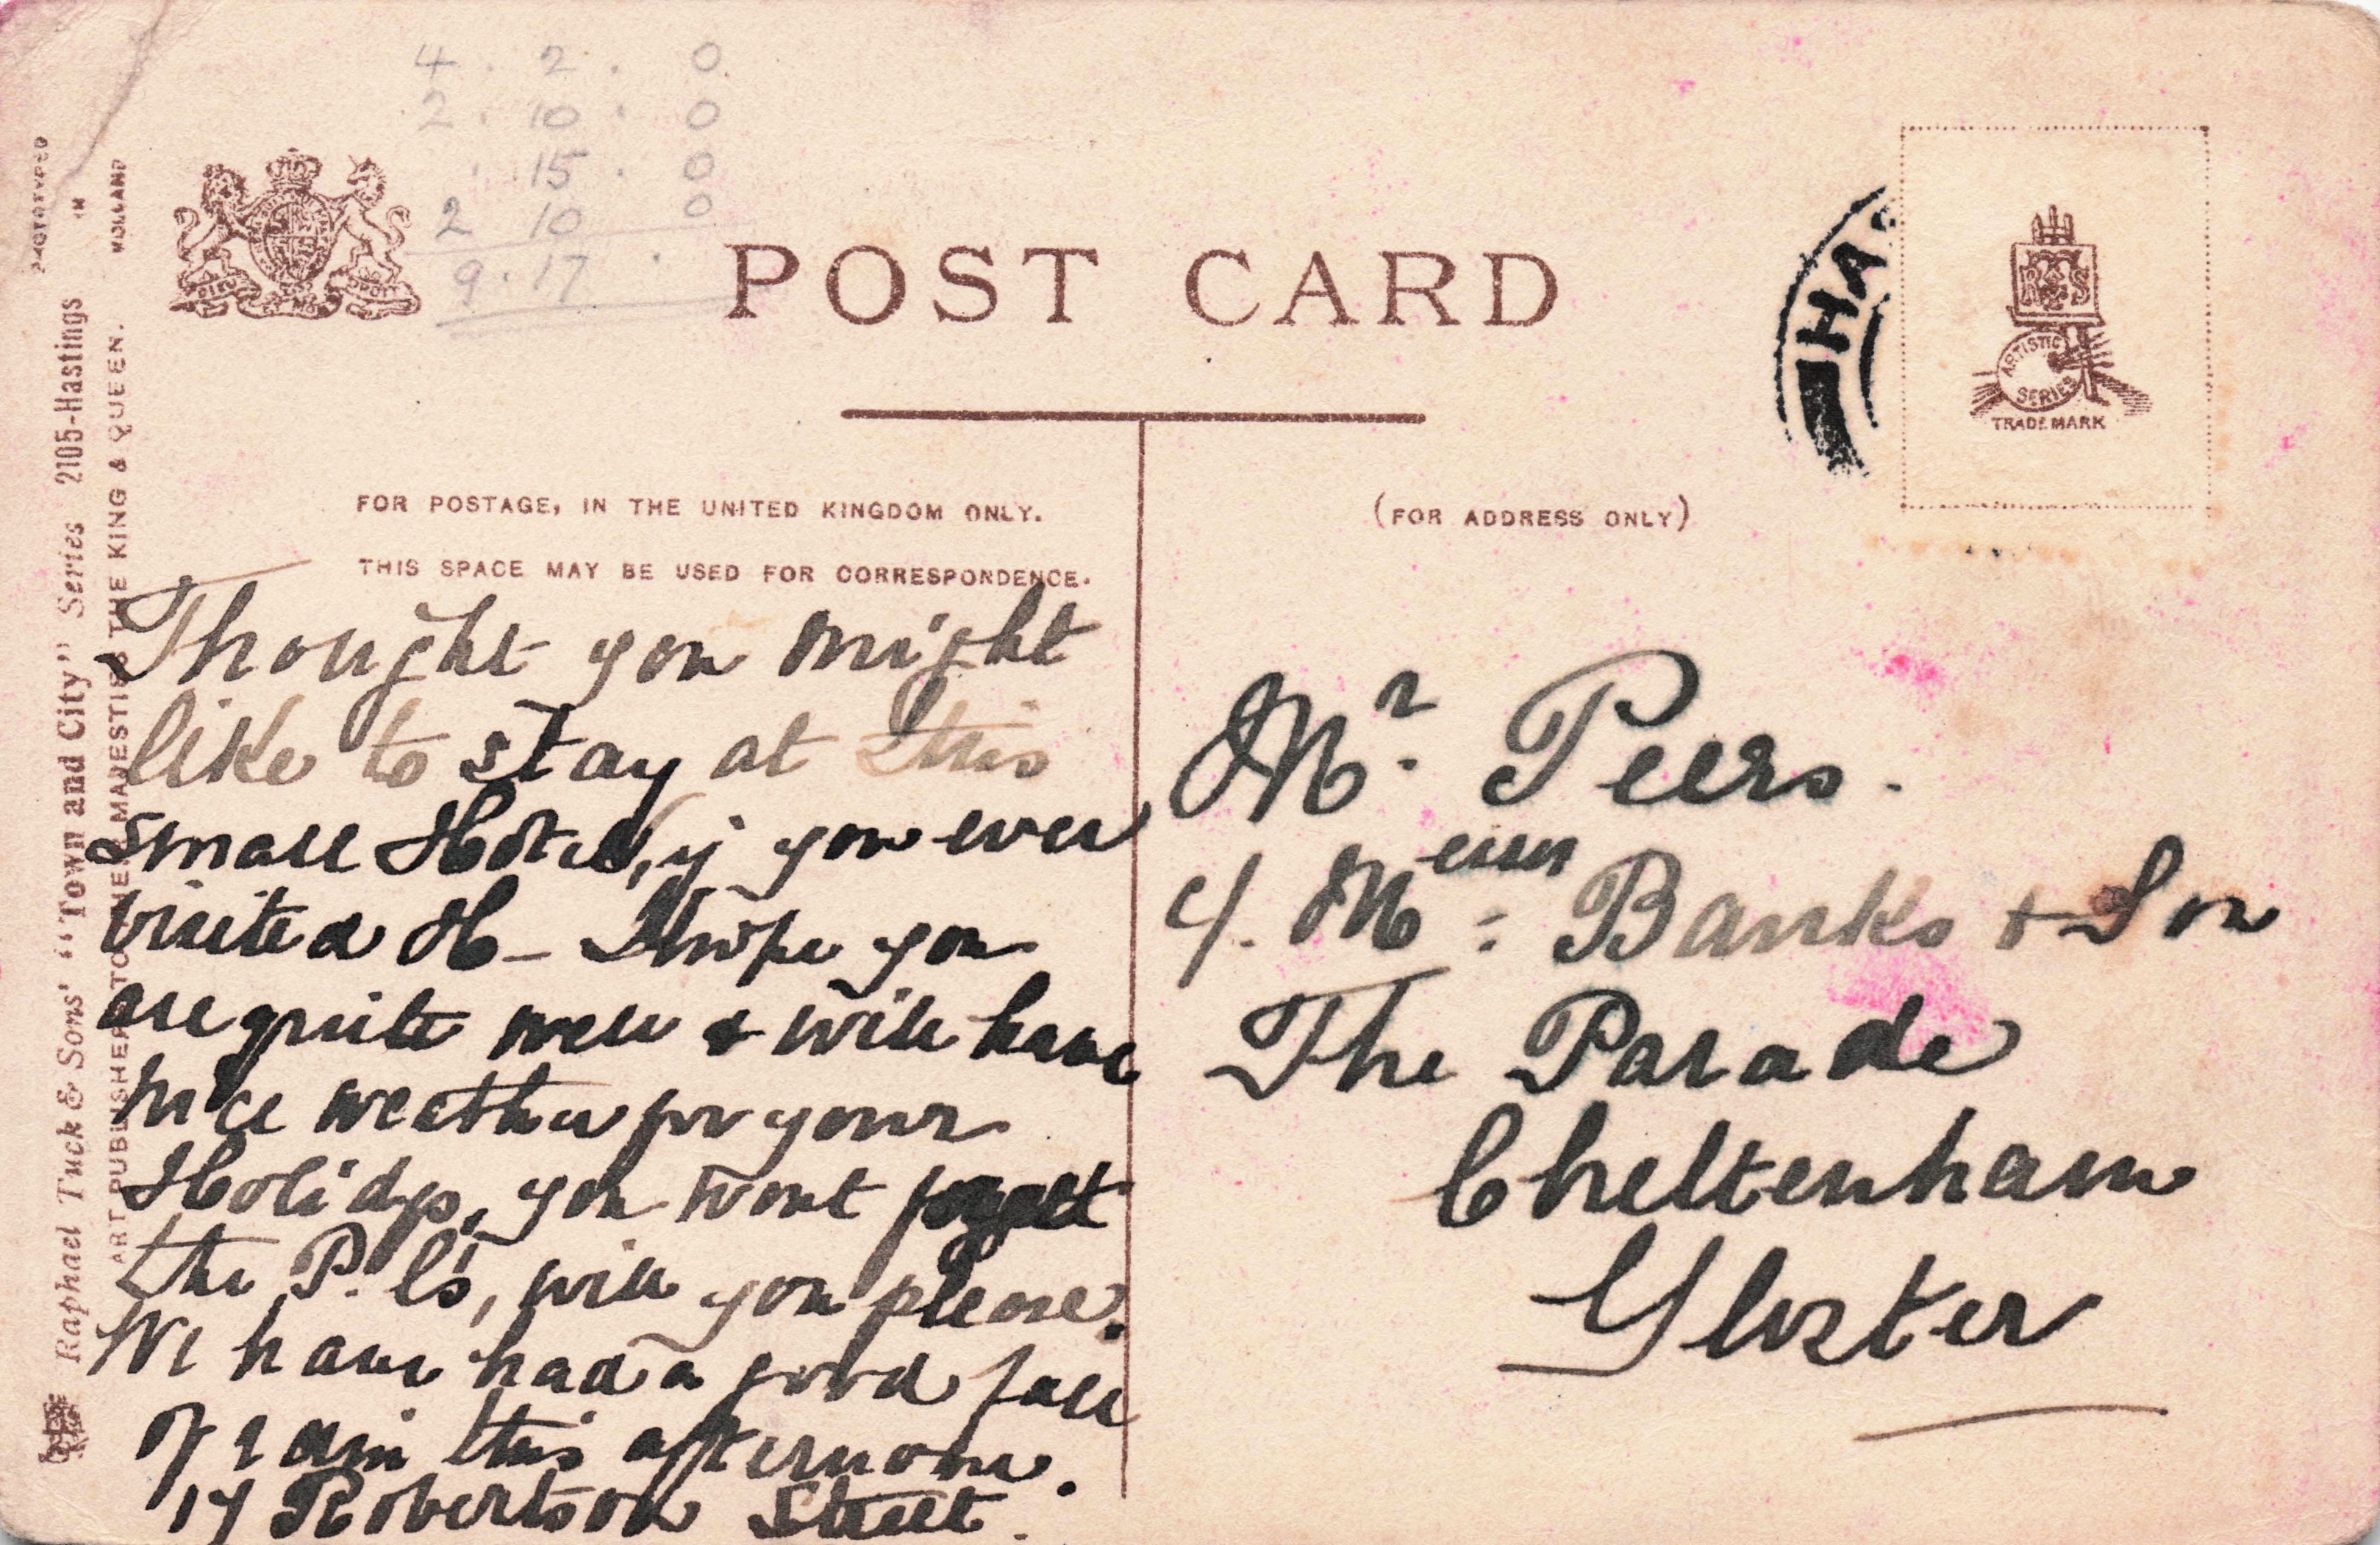 4 . 2 . 0
2 . 10 . 0
15 . 0
2 10 0
9 . 17 .
POST CARD
HAS
R T S
ARTISTIC
SERIES
TRADE MARK
DIEU ET MON DROIT
FOR POSTAGE, IN THE UNITED KINGDOM ONLY.
THIS SPACE MAY BE USED FOR CORRESPONDENCE.
(FOR ADDRESS ONLY)
Thought you might
like to stay at this
small Hotel, if you ever
visited H – I hope you
are quite well & will have
nice weather for your
Holidys, you wont forget
the P.C's, will you please.
We have had a good fall
of rain this afternoon.
17 Robertson Street.
Mr. Peers.
c/. Messrs: Banks & Son
The Parade
Cheltenham
Gloster
PHOTOTYPED IN HOLLAND
Raphael Tuck & Sons' "Town and City" Series 2105-Hastings
ART PUBLISHERS TO THEIR MAJESTIES THE KING & QUEEN.